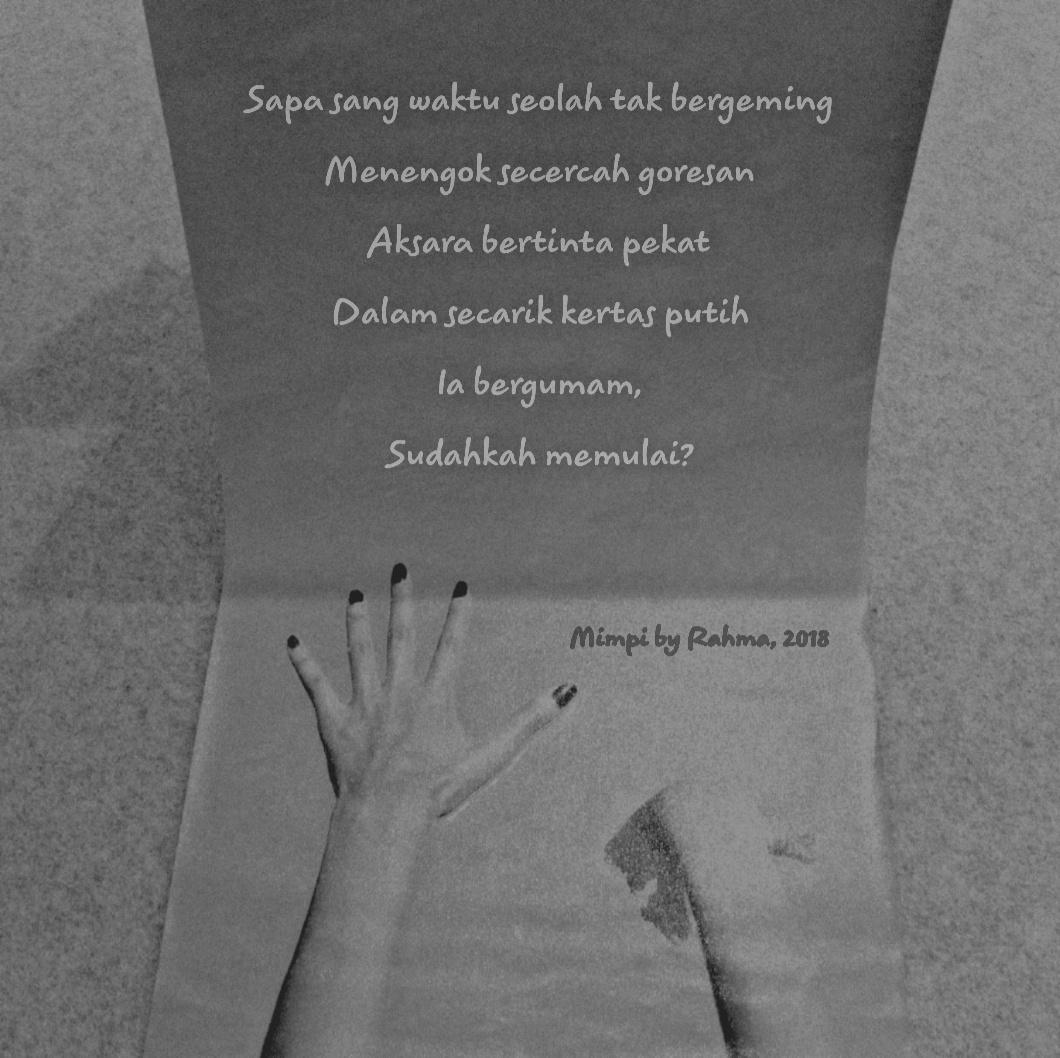 Sapa sang waktu seolah tak bergeming
Menengok secercah goresan
Aksara bertinta pekat
Dalam secarik kertas putih
Ia bergumam,
Sudahkah memulai?
Mimpi by Rahma, 2018